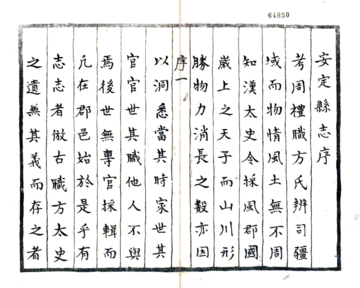 64850
安定縣志序
考周禮職方氏辨司疆
域而物情風土無不周
知漢太史令採風郡國
歲上之天子而山川形
勝物力消長之數亦因
序一
以洞悉當其時家世其
官官世其職他人不與
焉後世無專官採輯而
凢在郡邑始於是乎有
志志者倣古職方太史
之遺無其義而存之者